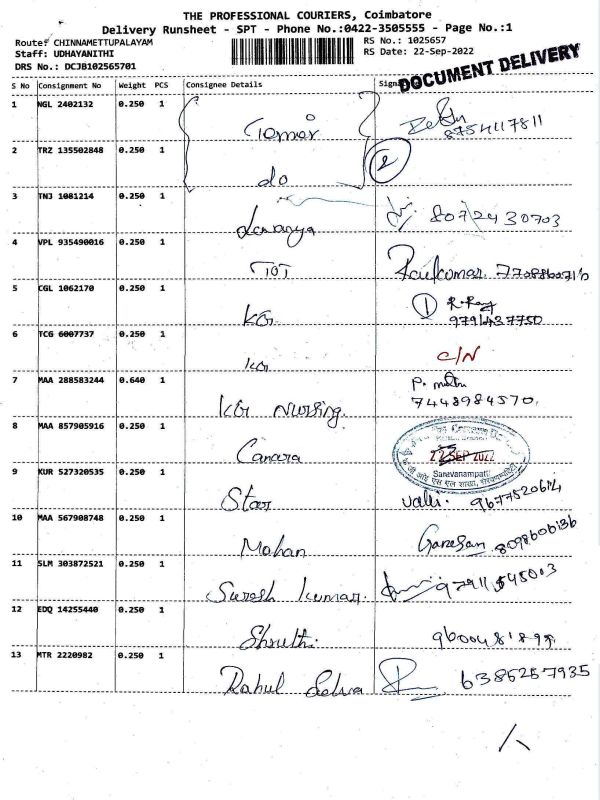 THE PROFESSIONAL COURIERS, Coimbatore
Delivery Runsheet - SPT - Phone No.:0422-3505555 - Page No.:1
Route: CHINNAMETTUPALAYAM
RS No.: 1025657
Staff: UDHAYANITHI
RS Date: 22-Sep-2022
DRS No.: DCJB102565701
DOCUMENT DELIVERY
S No Consignment No Weight PCS Consignee Details
1 NGL 2402132 0.250 1
8754117811
2 TRZ 135502848 0.250 1 do
2
3 TNJ 1081214 0.250 1 Lavanya 8072430703
4 VPL 935490016 0.250 1
5 CGL 1062170 0.250 1 KGi 1
9791437750
6 TCG 6007737 0.250 1 KGi C/N
7 MAA 288583244 0.640 1 KGi Nursing.
7448984570.
8 MAA 857905916 0.250 1 Canara
22 SEP 2022
Saravanampatti
9 KUR 527320535 0.250 1 Star
10 MAA 567908748 0.250 1 Mohan Ganesan
11 SLM 303872521 0.250 1 Suresh Kumar.
12 EDQ 14255440 0.250 1 Shruthi.
13 MTR 2220982 0.250 1 Rahul Selva 6385257935